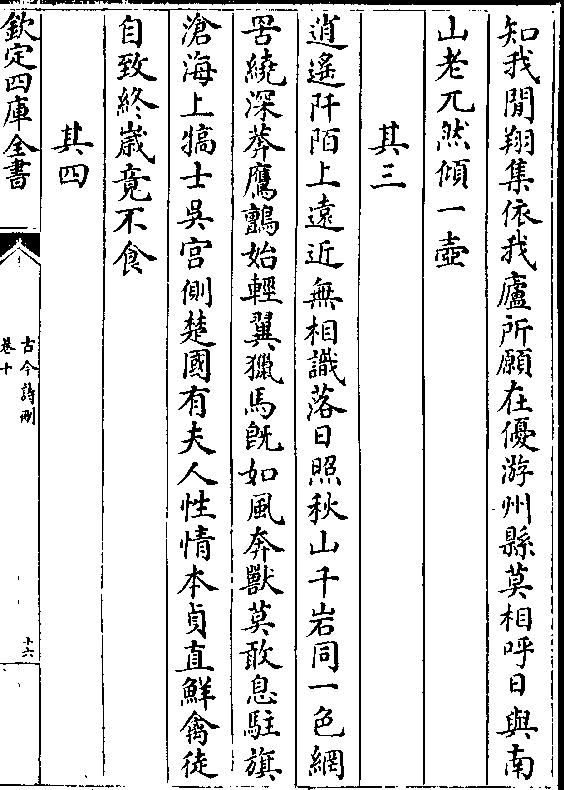 知我閒翔集依我廬所願在優游州縣莫相呼日與南
山老兀然傾一壺
其三
逍遙阡陌上遠近無相識落日照秋山千岩同一色網
罟繞深莽鷹鸇始輕翼獵馬旣如風奔獸莫敢息駐旗
滄海上犒士吳宮側楚國有夫人性情本貞直鮮禽徒
自致終歲竟不食
其四
欽定四庫全書
古今詩刪
卷十
十六